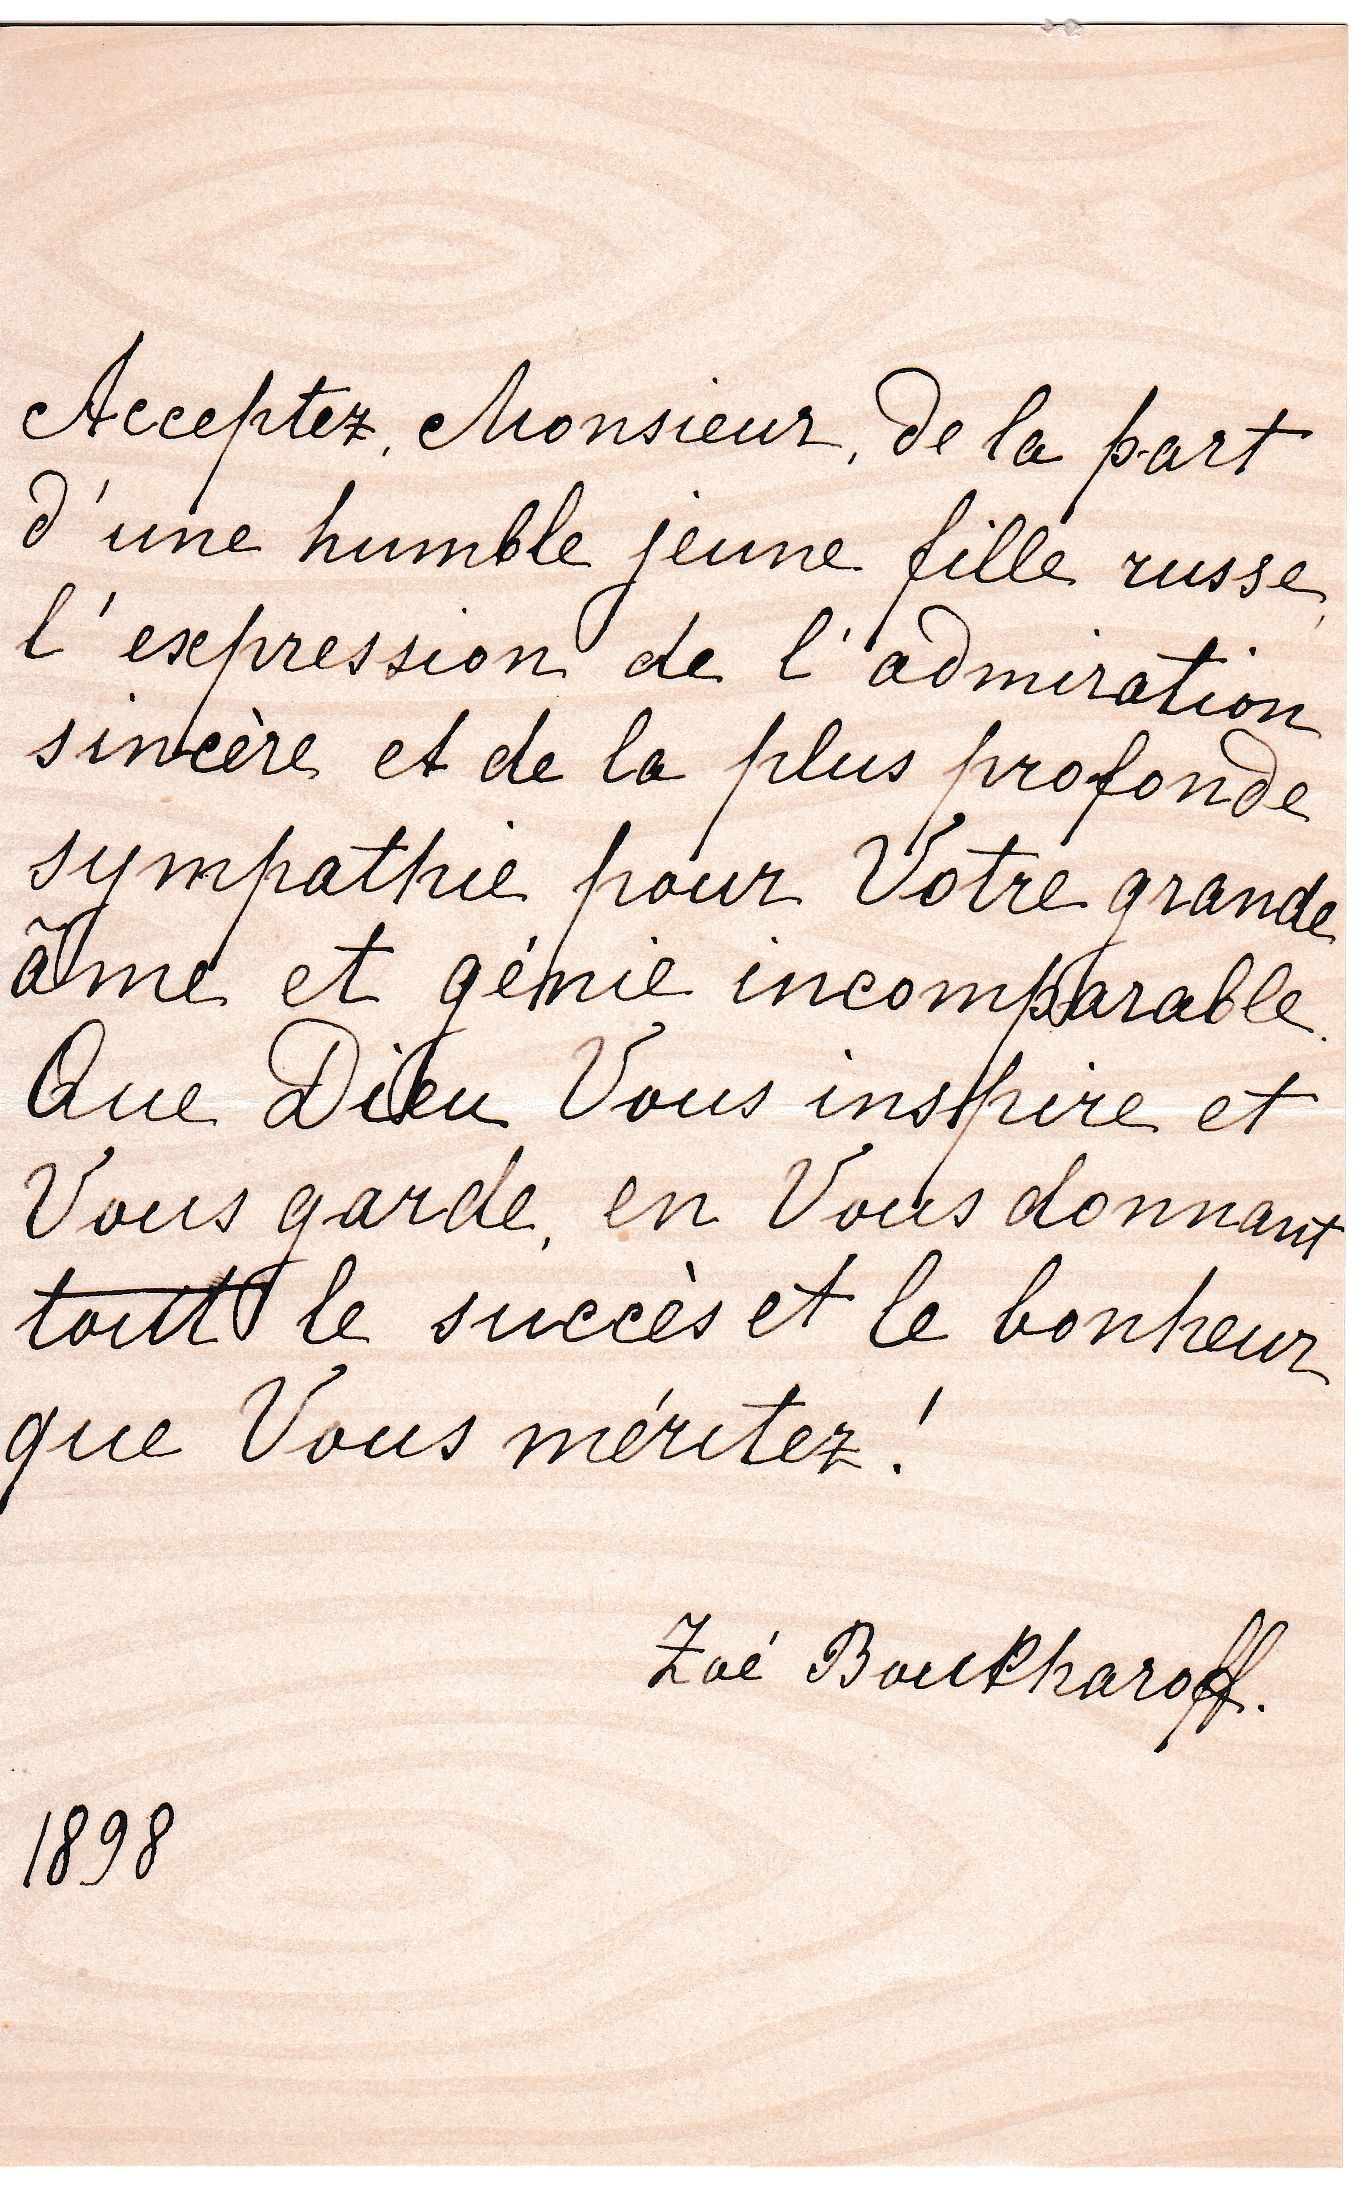 Acceptez, Monsieur, de la part
d'une humble jeune fille russe,
l'expression de l'admiration
sincère et de la plus profonde
sympathie pour Votre grande
âme et génie incomparable.
Que Dieu Vous inspire et
Vous garde, en Vous donnant
tout le succès et le bonheur
que Vous méritez!
Zoé Boukharoff.
1898